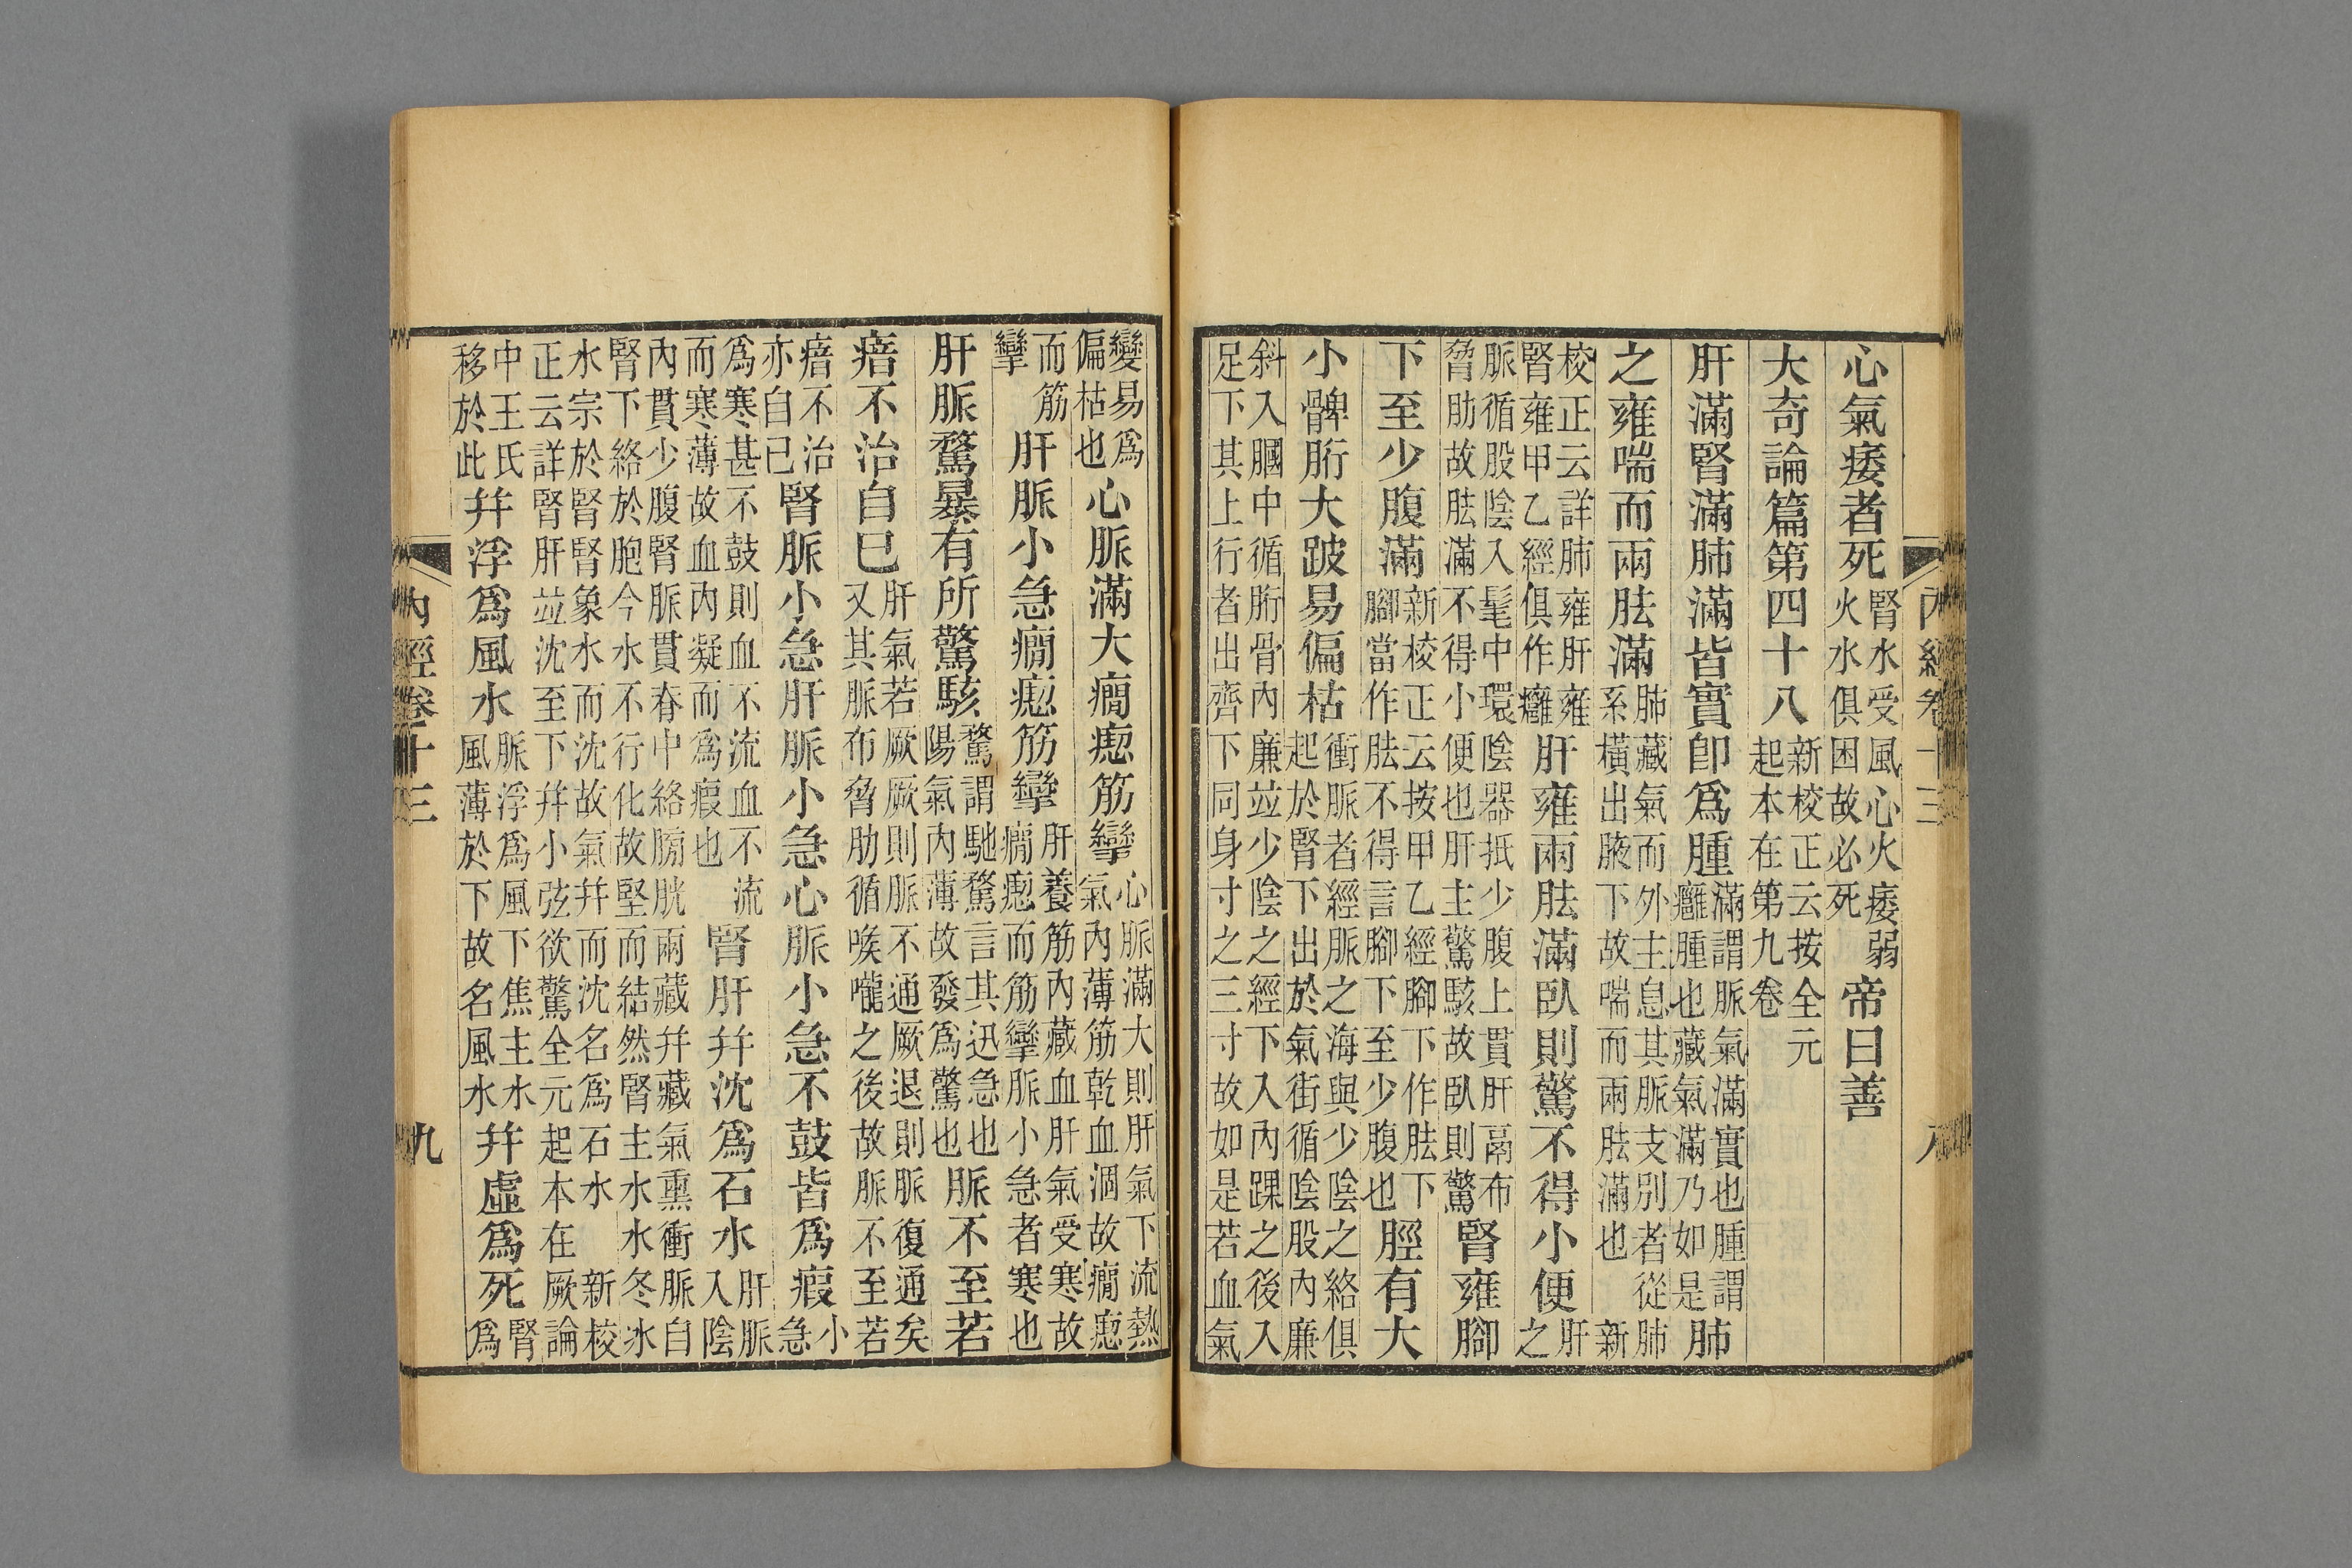 內經卷十三 八
心氣痿者死腎水受風心火痿弱火水俱困故必死帝曰善
大奇論篇第四十八新校正云按全元起本在第九卷
肝滿腎滿肺滿皆實卽爲腫滿謂脈氣滿實也腫謂癰腫也藏氣滿乃如是肺
之雍喘而兩胠滿肺藏氣而外主息其脈支別者從肺系橫出腋下故喘而兩胠滿也新
校正云詳肺雍肝雍腎雍甲乙經俱作癰肝雍兩胠滿臥則驚不得小便肝之
脈循股陰入髦中環陰器抵少腹上貫肝鬲布脅肋故胠滿不得小便也肝主驚駭故臥則驚腎雍腳
下至少腹滿新校正云按甲乙經腳下作胠下腳當作胠不得言腳下至少腹也脛有大
小髀胻大跛易偏枯衝脈者經脈之海與少陰之絡俱起於腎下出於氣街循陰股內廉
斜入膕中循胻骨內廉並少陰之經下入內踝之後入足下其上行者出齊下同身寸之三寸故如是若血氣
變易爲偏枯也心脈滿大癇瘛筋攣心脈滿大則肝氣下流熱氣內薄筋乾血涸故癇瘛
而筋攣肝脈小急癇瘛筋攣肝養筋內藏血肝氣受寒故癇瘛而筋攣脈小急者寒也
肝脈騖暴有所驚駭騖謂馳騖言其迅急也陽氣內薄故發爲驚也脈不至若
瘖不治自已肝氣若厥厥則脈不通厥退則脈復通矣又其脈布脅肋循喉嚨之後故脈不至若
瘖不治亦自已腎脈小急肝脈小急心脈小急不鼓皆爲瘕小急
爲寒甚不鼓則血不流血不流而寒薄故血內凝而爲瘕也腎肝幷沈爲石水肝脈入陰
內貫少腹腎脈貫脊中絡膀胱兩藏幷藏氣熏衝脈自腎下絡於胞今水不行化故堅而結然腎主水水冬冰
水宗於腎腎象水而沈故氣幷而沈名爲石水新校正云詳腎肝並沈至下幷小弦欲驚全元起本在厥論
中王氏移於此幷浮爲風水脈浮爲風下焦主水風薄於下故名風水幷虛爲死腎爲
內經卷十三 九